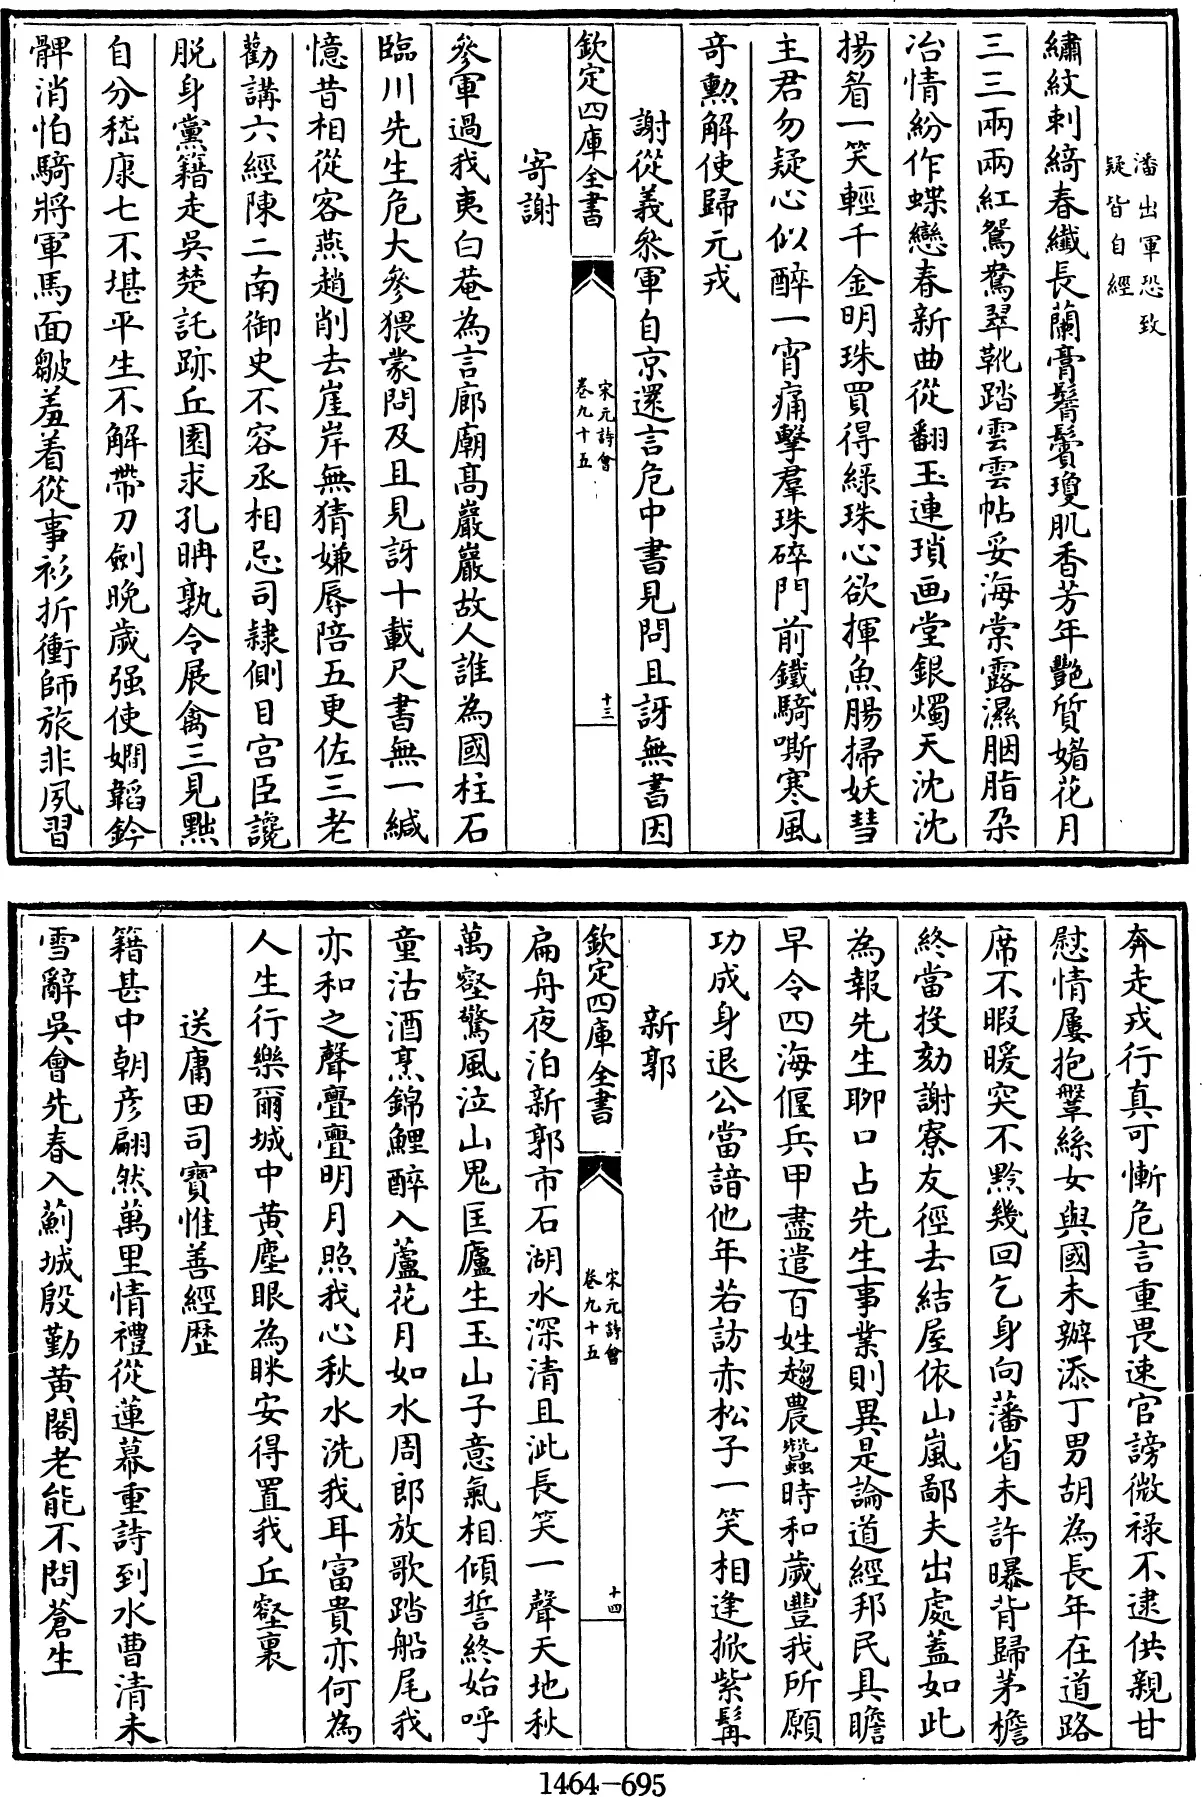 潘出軍恐致
疑皆自經
繡紋刺綺春纖長蘭膏鬅鬢瓊肌香芳年艷質媚花月
三三兩兩紅鴛鴦翠靴踏雲雲帖妥海棠露濕胭脂朶
冶情紛作蝶戀春新曲從翻玉連瑣画堂銀燭天沈沈
揚眉一笑輕千金明珠買得綠珠心欲揮魚腸掃妖彗
主君勿疑心似醉一宵痛擊羣珠碎門前鐵騎嘶寒風
竒勲解使歸元戎
謝從義叅軍自京還言危中書見問且訝無書因
欽定四庫全書
宋元詩會
卷九十五
十三
寄謝
叅軍過我夷白菴為言廊廟髙巖巖故人誰為國柱石
臨川先生危大參猥蒙問及且見訝十載尺書無一緘
憶昔相從客燕趙削去崖岸無猜嫌辱陪五更佐三老
勸講六經陳二南御史不容丞相忌司隸側目宫臣讒
脱身黨籍走吳楚託跡丘園求孔聃孰令展禽三見黜
自分嵇康七不堪平生不解帶刀劍晚歲强使嫺韜鈐
髀消怕騎將軍馬面皺羞着從事衫折衝師旅非夙習
奔走戎行真可慚危言重畏速官謗微祿不逮供親甘
慰情屢抱鞶絲女與國未辦添丁男胡為長年在道路
席不暇暖突不黔幾回乞身向藩省未許曝背歸茅檐
終當投劾謝寮友徑去結屋依山嵐鄙夫出處蓋如此
為報先生聊口占先生事業則異是論道經邦民具瞻
早令四海偃兵甲盡遣百姓趨農蠶時和歲豐我所願
功成身退公當諳他年若訪赤松子一笑相逢掀紫髯
新郭
欽定四庫全書
宋元詩會
卷九十五
十四
扁舟夜泊新郭市石湖水深清且泚長笑一聲天地秋
萬壑驚風泣山鬼匡廬生玉山子意氣相傾誓終始呼
童沽酒烹錦鯉醉入蘆花月如水周郎放歌踏船尾我
亦和之聲亹亹明月照我心秋水洗我耳富貴亦何為
人生行樂爾城中黄塵眼為眯安得置我丘壑裏
送庸田司寶惟善經歴
籍甚中朝彦翩然萬里情禮從蓮幕重詩到水曹清未
雪辭吳會先春入薊城殷勤黄閣老能不問蒼生
1464-695